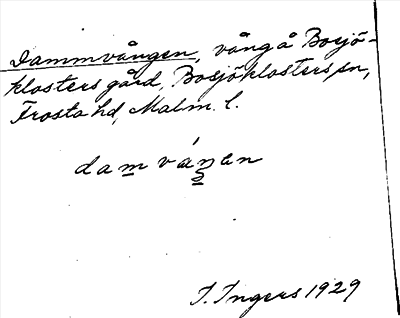 Dammvången, vång å Bosjö-
klosters gård, Bosjöklosters sn,
Frosta hd, Malm. l.
dam váŋen
I. Ingers 1929